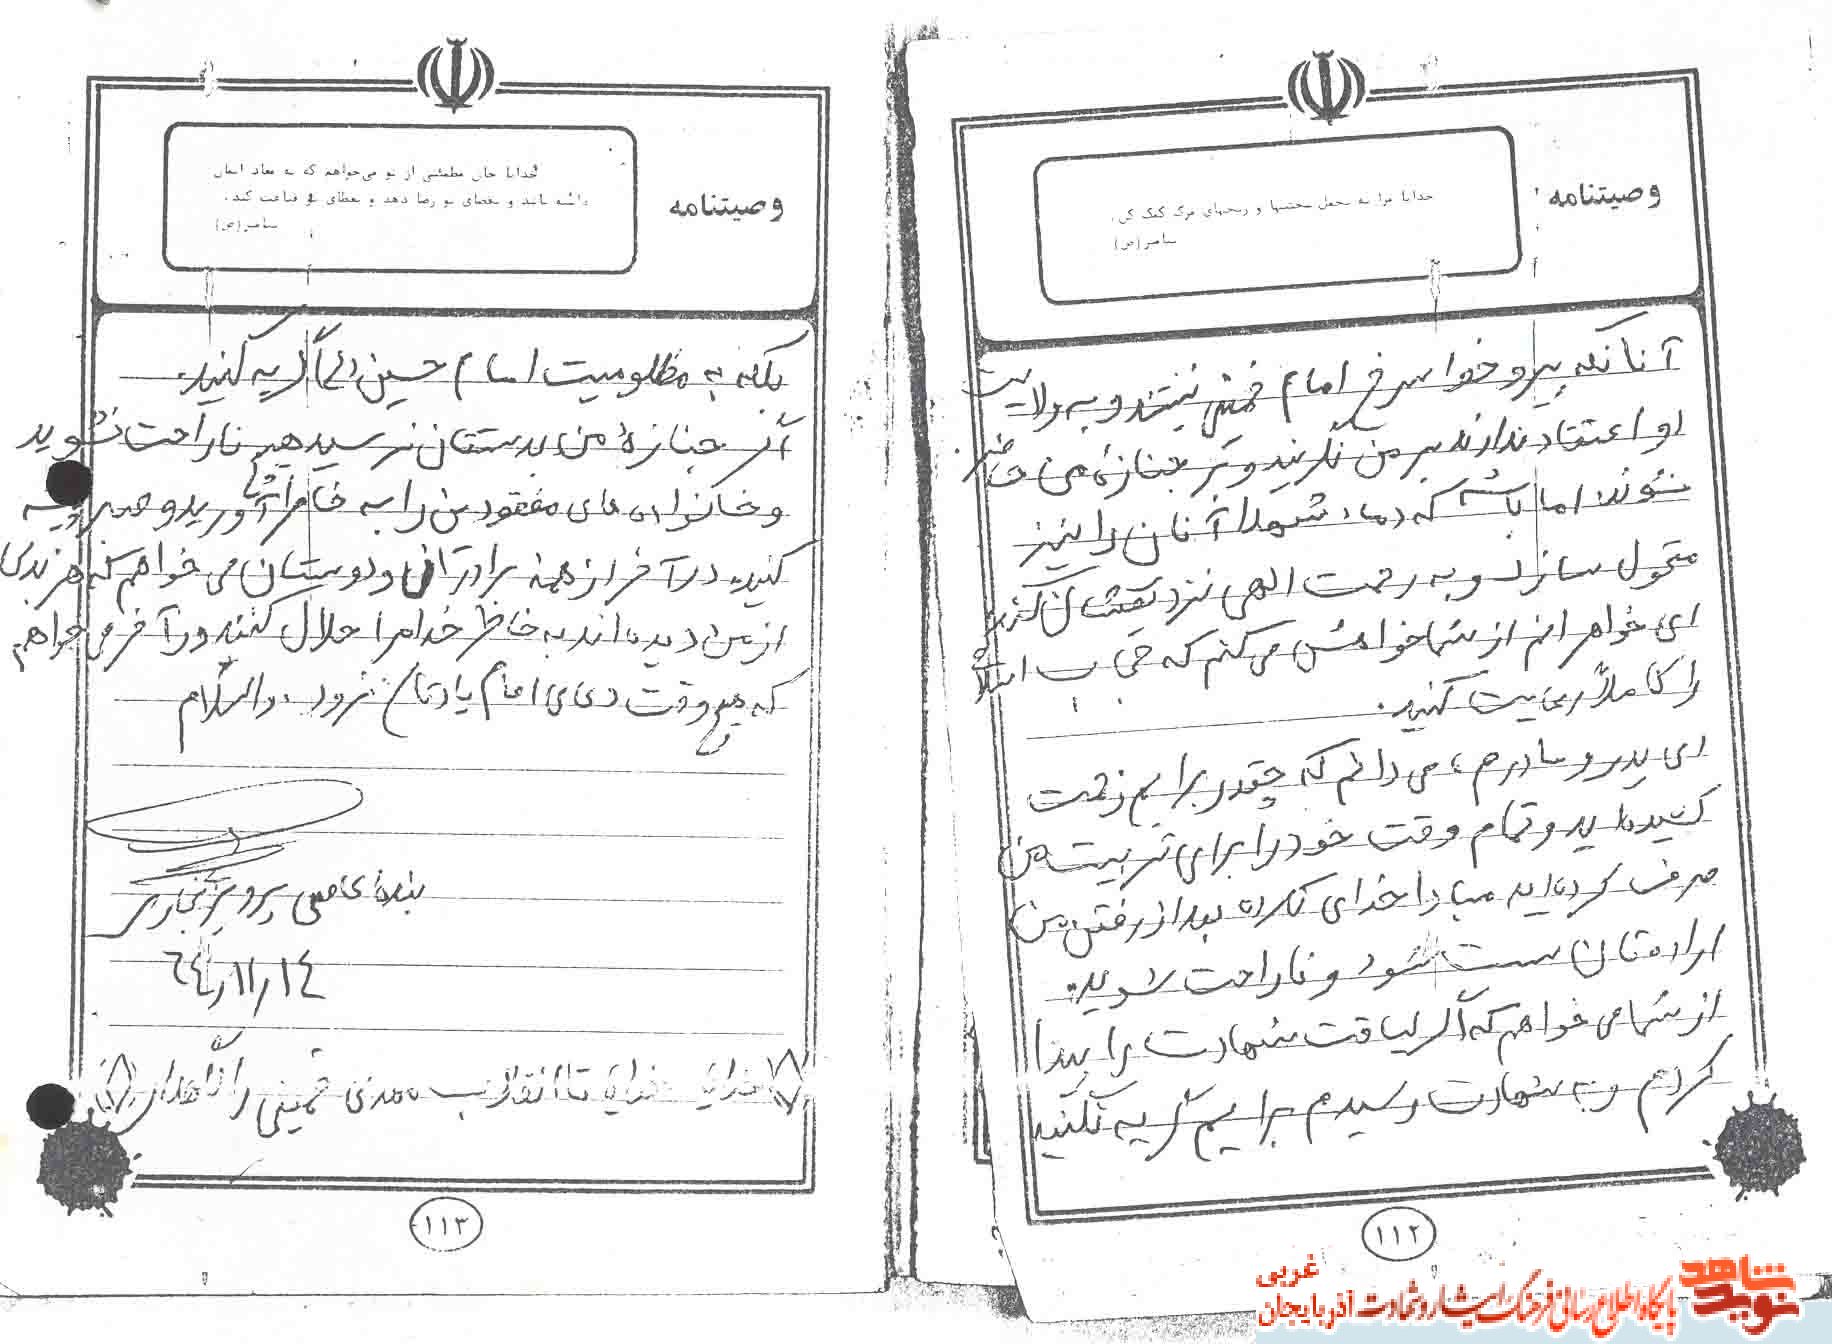 وصیتنامه
خدایا مرا به تحمل سختیها و رنجهای مرگ کمک کن.
پیامبر (ص)
آنانکه پیرو خط سرخ امام خمینی نیستند و به ولایت
او اعتقاد ندارند بر من نگریند و بر جنازه من حاضر
نشوند. اما باشد که دماء شهدا آنان را نیز
متحول سازد و به رحمت الهی نزدیکشان کند.
ای خواهرانم از شما خواهش می کنم که حجاب اسلامی
را کاملاً رعایت کنید.
ای پدر و مادرم، می دانم که چقدر برایم زحمت
کشیده اید و تمام وقت خود را برای تربیت من
صرف کرده اید مبادا خدای نکرده بعد از رفتن من
اراده تان سست شود و ناراحت شوید.
از شما می خواهم که اگر لیاقت شهادت را پیدا
کردم و به شهادت رسیدم برایم گریه نکنید
۱۱۲
وصیتنامه
خدایا جان مطمئنی از تو می‌خواهم که به معاد ایمان
داشته باشد و بقضای تو رضا دهد و بعطای تو قناعت کند.
پیامبر (ص)
بلکه به مظلومیت امام حسین (ع) گریه کنید.
اگر جنازهٔ من بدستتان نرسید هیچ ناراحت نشوید
و خانواده های مفقودین را به خاطر آورید و صبر پیشه
کنید. در آخر از همه برادران و دوستان می خواهم که هر بدی
از من دیده اند به خاطر خدا مرا حلال کنند در آخر می خواهم
که هیچ وقت دعای امام یادتان نرود. والسلام
بنده عاصی پرویز نجاری
۶۴/۱۱/۱۴
خدایا خدایا تا انقلاب مهدی خمینی را نگهدار
۱۱۳
نوید شاهد
پایگاه اطلاع رسانی فرهنگ ایثار و شهادت آذربایجان غربی